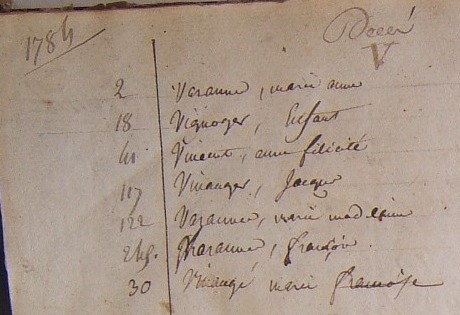 1784
Décès
V
2 Varanne, marie anne
18 Vignoger, Enfant
41 Vincent, anne félicité
117 Vinanger, Jacques
122 Varanne, marie madelaine
245. Varanne, françois
30 Vinangé marie françoise